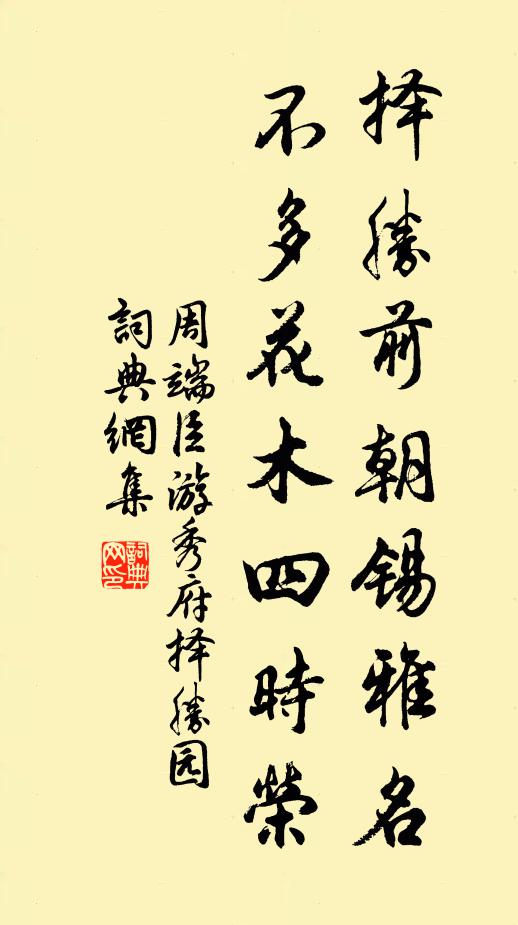 择勝前朝锡雅名
不多花木四時榮
周端臣游秀府择勝园
詞典網集
詞典
网印